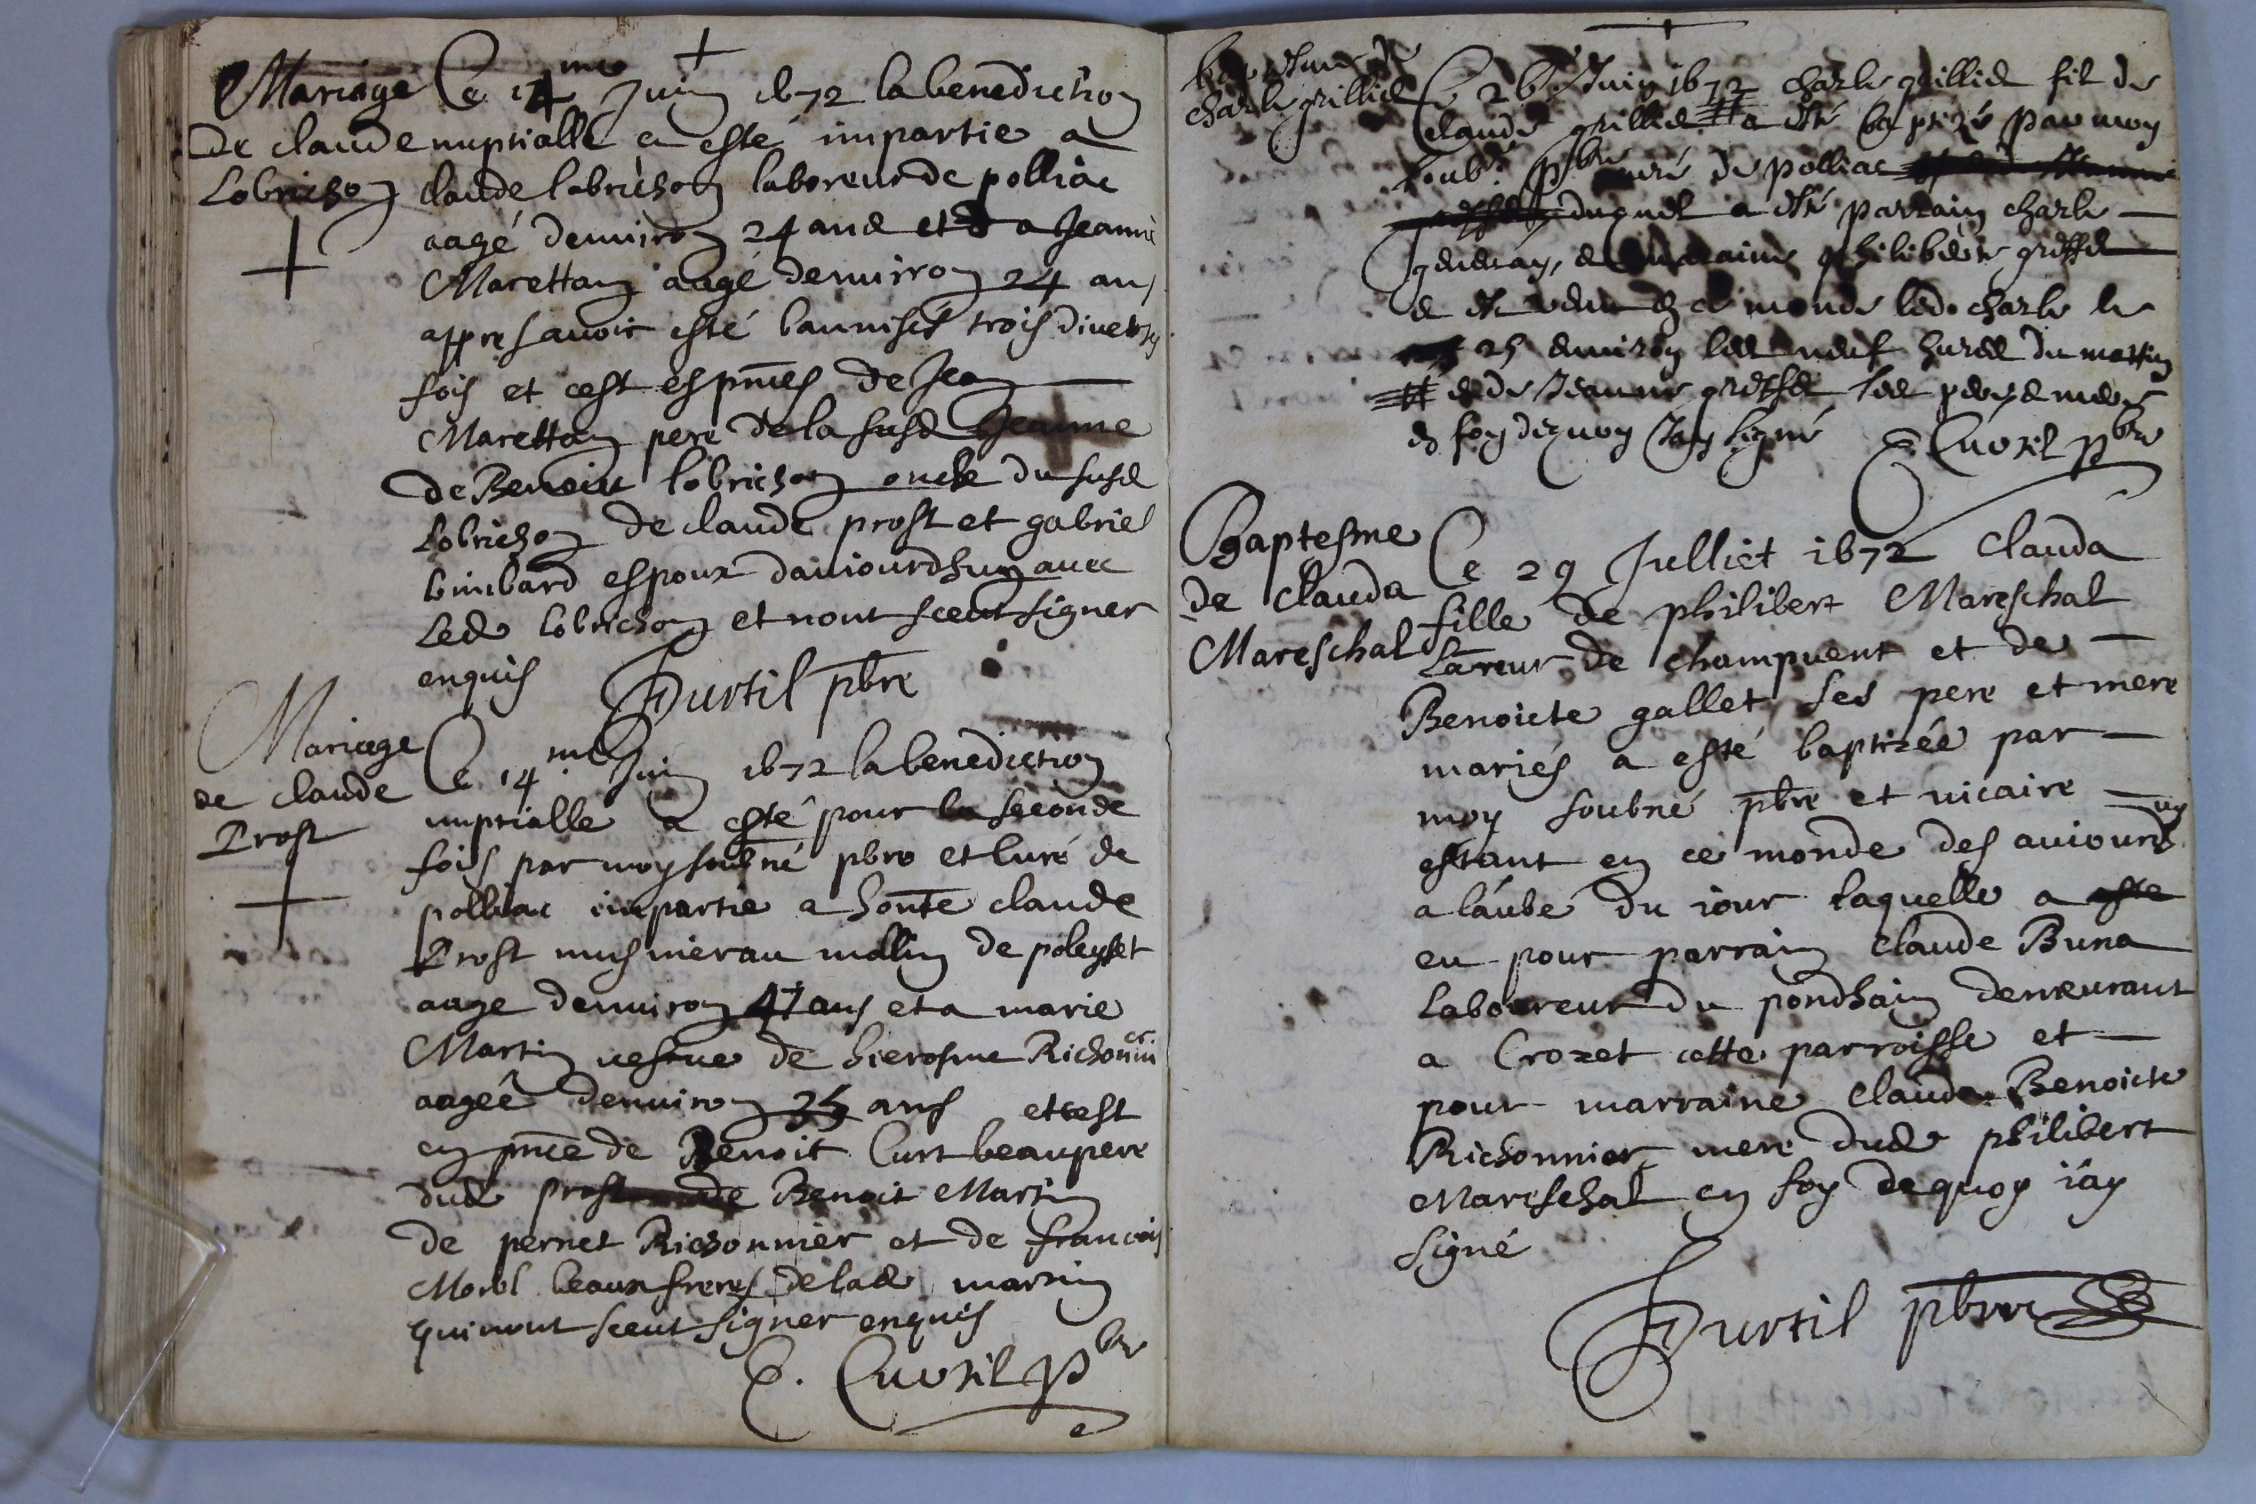 Mariage
de claude
Lobrichon
Ce 14me Juin 1672 la benediction
nuptialle a esté impartie a
claude lobrichon laboreur de polliac
aagé denuiron 24 ans et a Jeanne
Maretton aagé denuiron 24 ans
appres auoir esté bannises trois diverses
fois et cest es pnces de Jean
Maretton pere de la susd Jeanne
de Benoict lobrichon oncle du susd
Lobrichon de claude prost et gabriel
espoux daujourdhuy auec
led lobrichon et nont sceut signer
enquis Durtil pbre
Mariage
de claude
Prost
Ce 14me Juin 1672 la benediction
nuptialle a esté pour la seconde
fois par moy soubné pbre et Curé de
polliac impartie a honte claude
Prost musnier au mollin de poleyset
aage denuiron 47 ans et a marie
Martin uesfue de hierosme Richonnier
aageê denuiron ans et cest
en pnce de Benoit Curt beaupere
dud prost de Benoit Martin
de pernet Richonnier et de francois
Morel beaux freres de lad martin
qui nont sceut signer enquis
C. Cuortil pbre
charle grillied
Ce 26 Juin 1672 charle grillied fil de
claude grillied # a eté baptizé par moy
soub. pbre curé de polliac
duquel a eté parrain charle
et marraine philiberte griffed
e ete venu en ce monde led. charle le
25 enuiron les neuf hures du mattin
# e de Jeanne griffed ses pere e mere
en foy dequoy Jay signé C Cuortil pbre
Baptesme
de clauda
Mareschal
Ce 29 Julliet 1672 clauda
fille de philibert Mareschal
Lareur de champuent et de
Benoicte gallet ses pere et mere
mariés a esté baptizée par
moy soubné pbre et uicaire
estant en ce monde des auiourdhuy
a láube du iour laquelle a este
eu pour parrain claude Buna
laboureur du pondhain demeurant
a Crozet cette parroisse et
pour marraine claude Benoicte
Richonnier mere dud philibert
Mareschal en foy de quoy iáy
signé
Durtil pbre